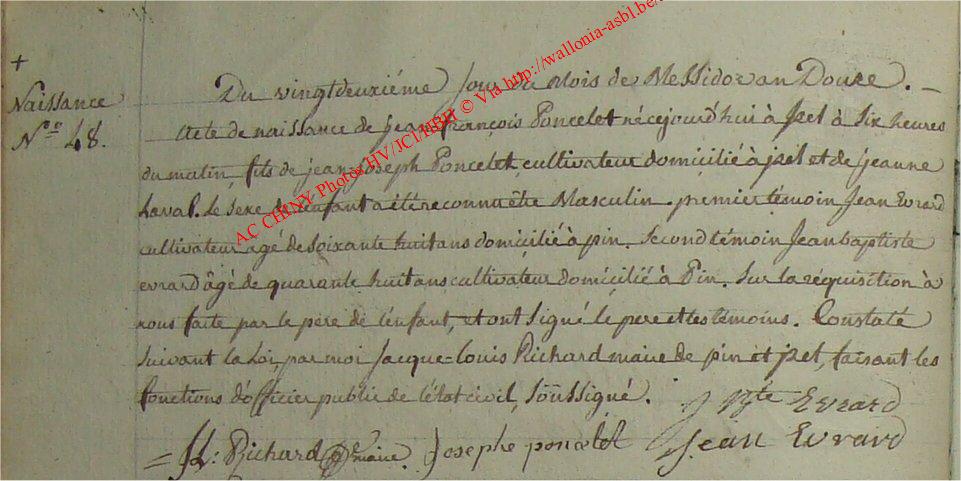 +
Naissance
N.ro 48.
Du vingtdeuxiéme jour du Mois de Messidor an Douze. —
Acte de naissance de jean françois Poncelet né cejourd'hui à Izel à Six heures
du matin, fils de jean joseph Poncelet, cultivateur domicilié à jzel et de jeanne
Laval. Le Sexe de l'enfant a été reconnu être Masculin. premier témoin Jean Evrard
cultivateur agé de Soixante huit ans domicilié à pin. Second témoin Jean baptiste
evrard âgé de quarante huit ans cultivateur domicilié à Pin. Sur la réquisition à
nous faite par le pere de l'enfant, et ont Signé le pere et les témoins. Constaté
Suivant la Loi, par moi Jacque-louis Richard maire de pin et jzel, faisant les
fonctions d'officier public de l'état civil, Soussigné.
J Bte Evrard
JL: Richard maire. Josephe poncelet Jean Evrard
AC CHINY Photos HV/JCL/BBH © Via http://wallonia-asbl.be/